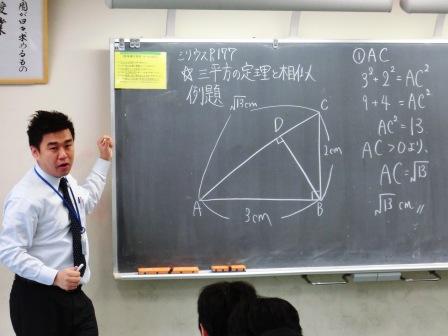 ミリウスP177
☆三平方の定理と相似
例題
√13cm
C
D
2cm
A
3cm
B
①AC
3²+2²=AC²
9+4=AC²
AC²=13
AC>0より、
AC=√13
√13cm〃